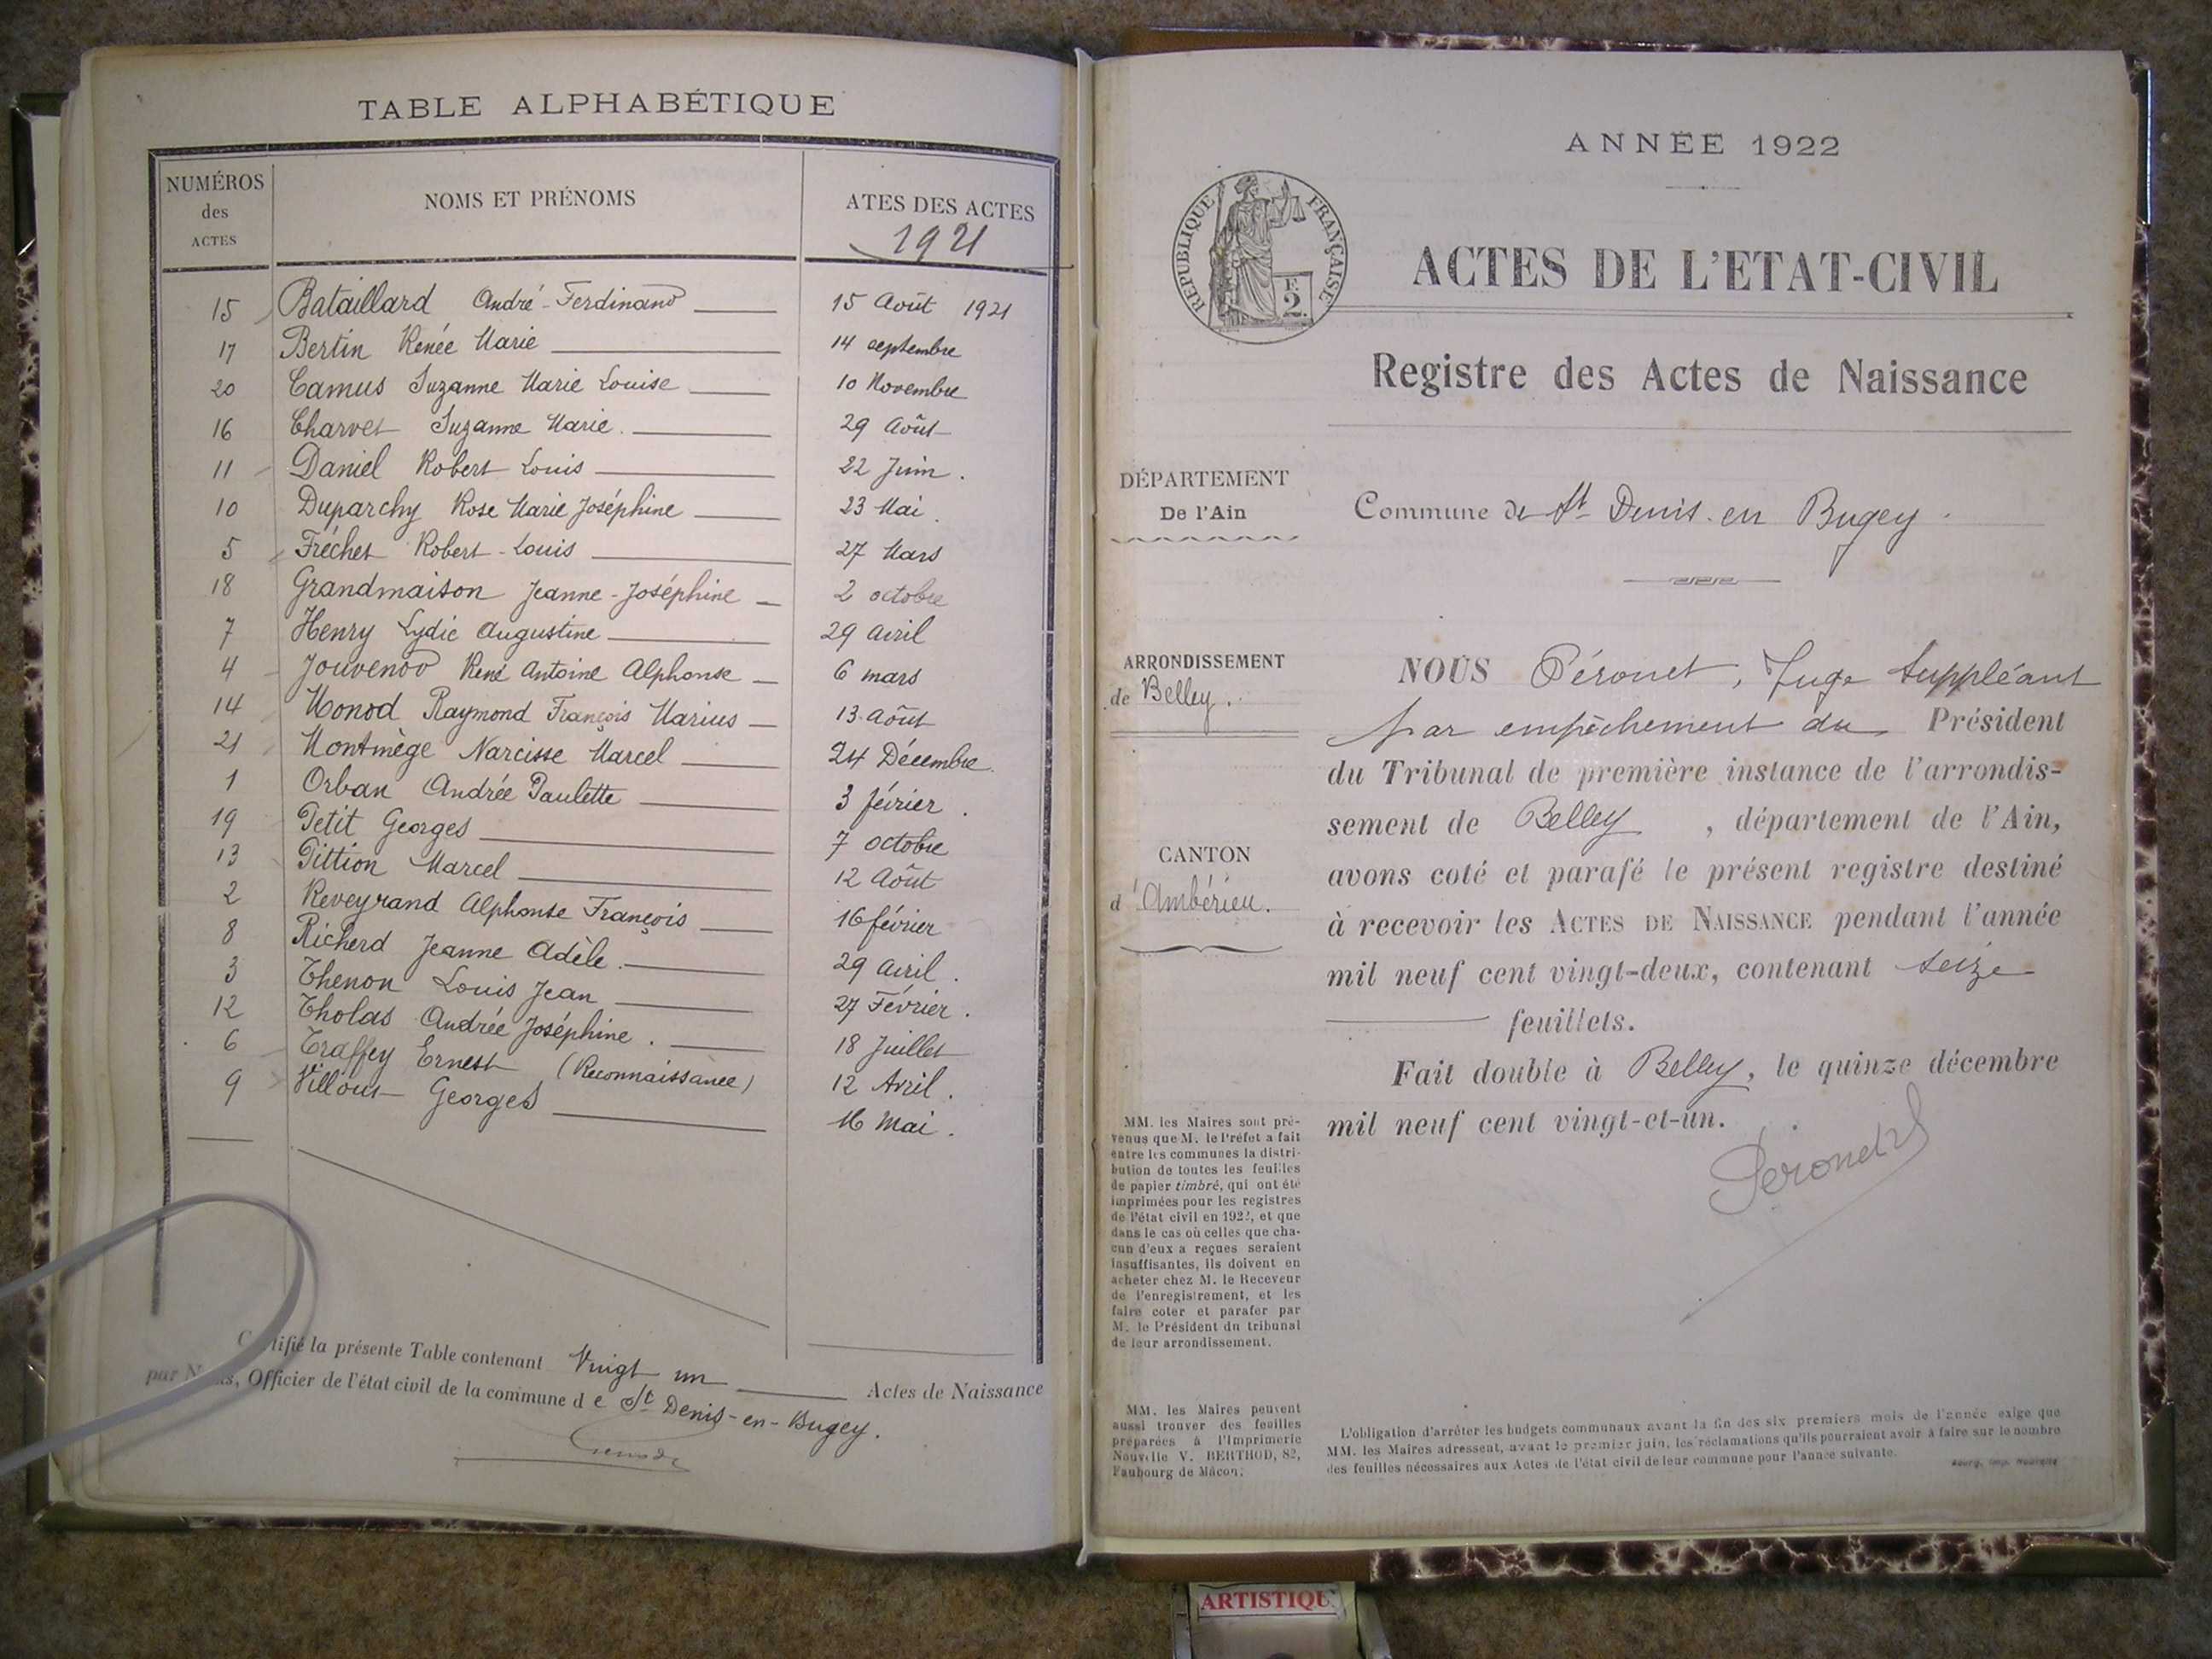 TABLE ALPHABÉTIQUE
NUMÉROS des ACTES
NOMS ET PRÉNOMS
ATES DES ACTES
1921
15 Bataillard André-Ferdinand 15 Août 1921
17 Bertin Renée Marie 14 septembre
20 Camus Suzanne Marie Louise 10 Novembre
16 Charvet Suzanne Marie. 29 Août
11 Daniel Robert Louis 22 Juin.
10 Duparchy Rose Marie Joséphine 23 Mai.
5 Fréchet Robert-Louis 27 Mars
18 Grandmaison Jeanne-Joséphine 2 octobre
7 Henry Lydie Augustine 29 avril
4 Jouvenod René Antoine Alphonse 6 mars
14 Monod Raymond François Marius 13 Août
21 Montmège Narcisse Marcel 24 Décembre.
1 Orban Andrée Paulette 3 février.
19 Petit Georges 7 octobre
13 Pittion Marcel 12 Août
2 Reveyrand Alphonse François 16 février
8 Richerd Jeanne Adèle. 29 avril.
3 Thenon Louis Jean 27 Février.
12 Tholas Andrée Joséphine. 18 Juillet
6 Traffey Ernest (Reconnaissance) 12 Avril.
9 Villout Georges 16 Mai.
tifié la présente Table contenant Vingt un Actes de Naissance
par N us, Officier de l'état civil de la commune de St Denis-en-Bugey.
ANNÉE 1922
RÉPUBLIQUE FRANÇAISE
F.
2.
ACTES DE L'ETAT-CIVIL
Registre des Actes de Naissance
DÉPARTEMENT
De l'Ain
Commune de St Denis-en Bugey.
ARRONDISSEMENT
de Belley.
CANTON
d'Ambérieu.
NOUS Péronet, Juge Suppléant
par empêchement du Président
du Tribunal de première instance de l'arrondis-
sement de Belley, département de l'Ain,
avons coté et parafé le présent registre destiné
à recevoir les ACTES DE NAISSANCE pendant l'année
mil neuf cent vingt-deux, contenant seize
feuillets.
Fait double à Belley, le quinze décembre
mil neuf cent vingt-et-un.
Peronet
MM. les Maires sont pré-
venus que M. le Préfet a fait
entre les communes la distri-
bution de toutes les feuilles
de papier timbré, qui ont été
imprimées pour les registres
de l'état civil en 1922, et que
dans le cas où celles que cha-
cun d'eux a reçues seraient
insuffisantes, ils doivent en
acheter chez M. le Receveur
de l'enregistrement, et les
faire coter et parafer par
M. le Président du tribunal
de leur arrondissement.
MM. les Maires peuvent
aussi trouver des feuilles
préparées à l'Imprimerie
Nouvelle V. BERTHOD, 82,
Faubourg de Mâcon.
L'obligation d'arrêter les budgets communaux avant la fin des six premiers mois de l'année exige que
MM. les Maires adressent, avant le premier juin, les réclamations qu'ils pourraient avoir à faire sur le nombre
des feuilles nécessaires aux Actes de l'état civil de leur commune pour l'année suivante.
Bourg, Imp. Nouvelle
ARTISTIQU